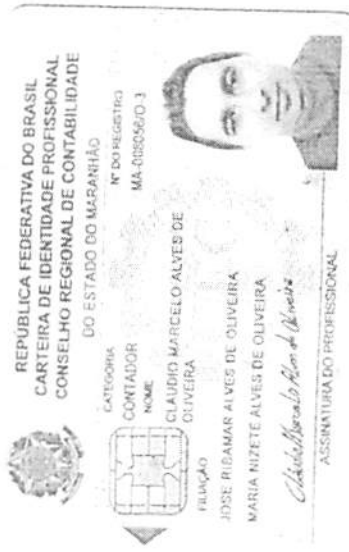 REPÚBLICA FEDERATIVA DO BRASIL
CARTEIRA DE IDENTIDADE PROFISSIONAL
CONSELHO REGIONAL DE CONTABILIDADE
DO ESTADO DO MARANHÃO
CATEGORIA
CONTADOR
Nº DO REGISTRO
MA-008056/O-3
NOME
CLAUDIO MARCELO ALVES DE
OLIVEIRA
FILIAÇÃO
JOSE RIBAMAR ALVES DE OLIVEIRA
MARIA NIZETE ALVES DE OLIVEIRA
Cláudio Marcelo Alves de Oliveira
ASSINATURA DO PROFISSIONAL